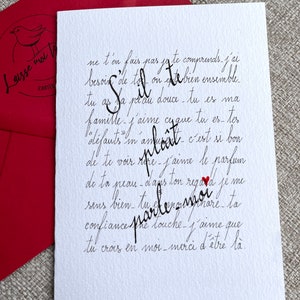 Laisse-moi te
ne t'en fais pas je te comprends j'ai
besoin de toi on est bien ensemble
tu as la peau douce tu es ma
famille j'aime ce que tu es tes
"défauts" m'amusent c'est si bon
de te voir rire j'aime le parfum
de ta peau dans ton regard je me
sens bien tu
confiance me touche j'aime que
tu crois en moi merci d'être là
S'il te
plaît
parle-moi